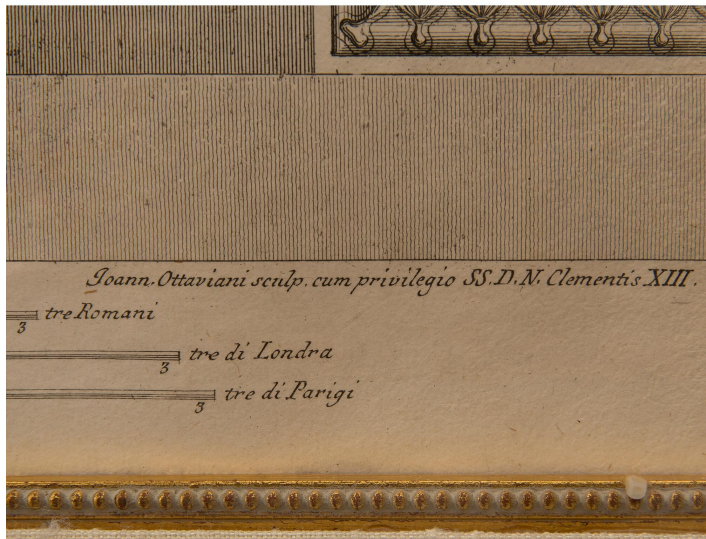 Joann. Ottaviani sculp. cum privilegio SS. D. N. Clementis XIII.
3 tre Romani
3 tre di Londra
3 tre di Parigi